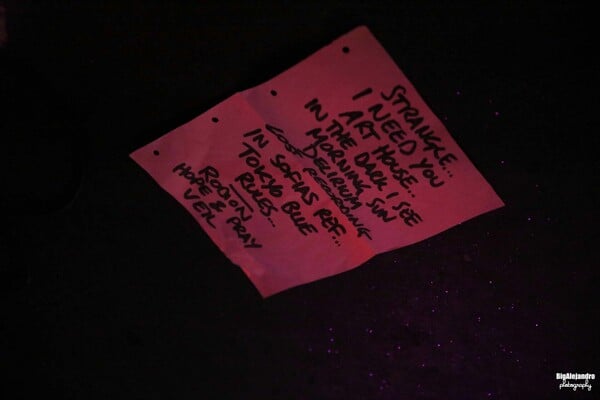 STRANGLE...
I NEED YOU
ART HOUSE..
IN THE DARK I SEE
MORNING SUN
DELIRIUM
LOST RECORDING
IN SOFIAS REF...
TOKYO BLUE
RULES...
HOPE & PRAY
VEIL
BigAlejandro
photography